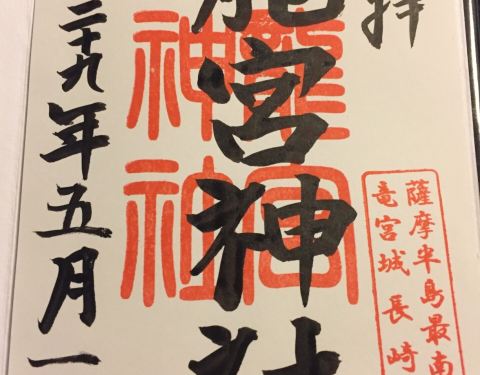 拝
薩摩半島最南
竜宮城 長崎
龍宮神社
龍宮
神社
二十九年五月一